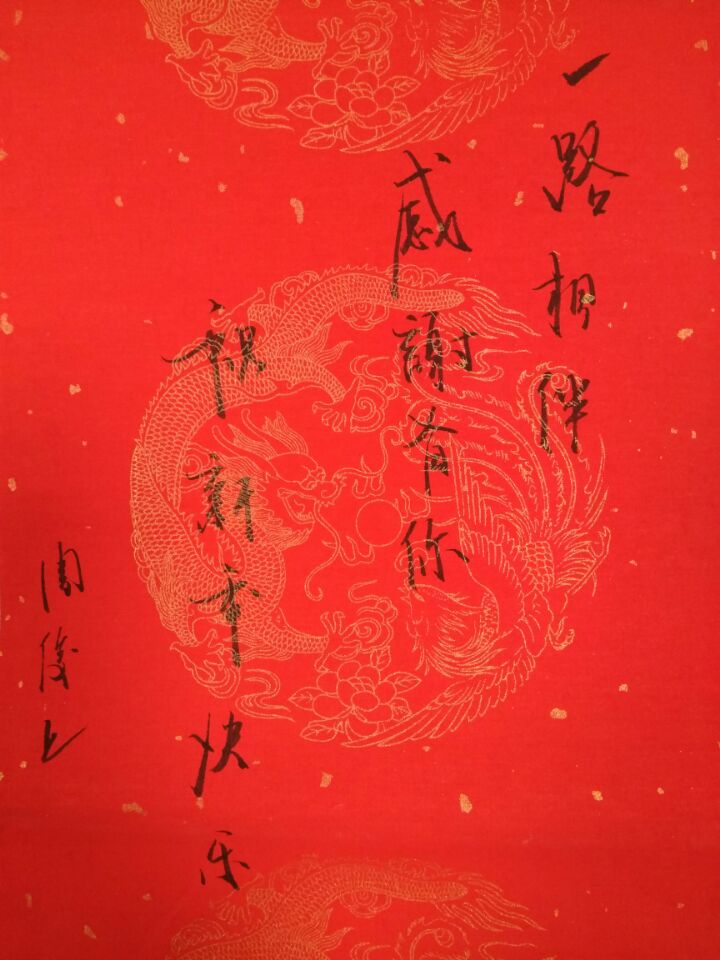 一路相伴
感謝有你
祝新年快乐
周俊上